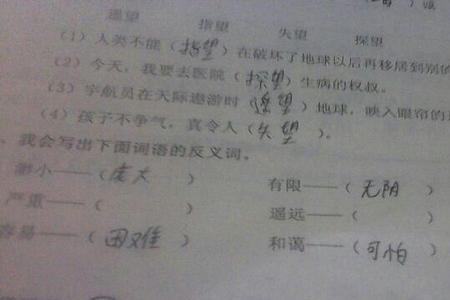 遥望 指望 失望 探望
(1)人类不能(指望)在破坏了地球以后再移居到别的
(2)今天,我要去医院(探望)生病的权叔。
(3)宇航员在天际遨游时(遥望)地球,映入眼帘的
(4)孩子不争气,真令人(失望)。
、我会写出下面词语的反义词。
渺小——(庞大) 有限——(无阴)
严重——( ) 遥远——( )
容易——(困难) 和蔼——(可怕)